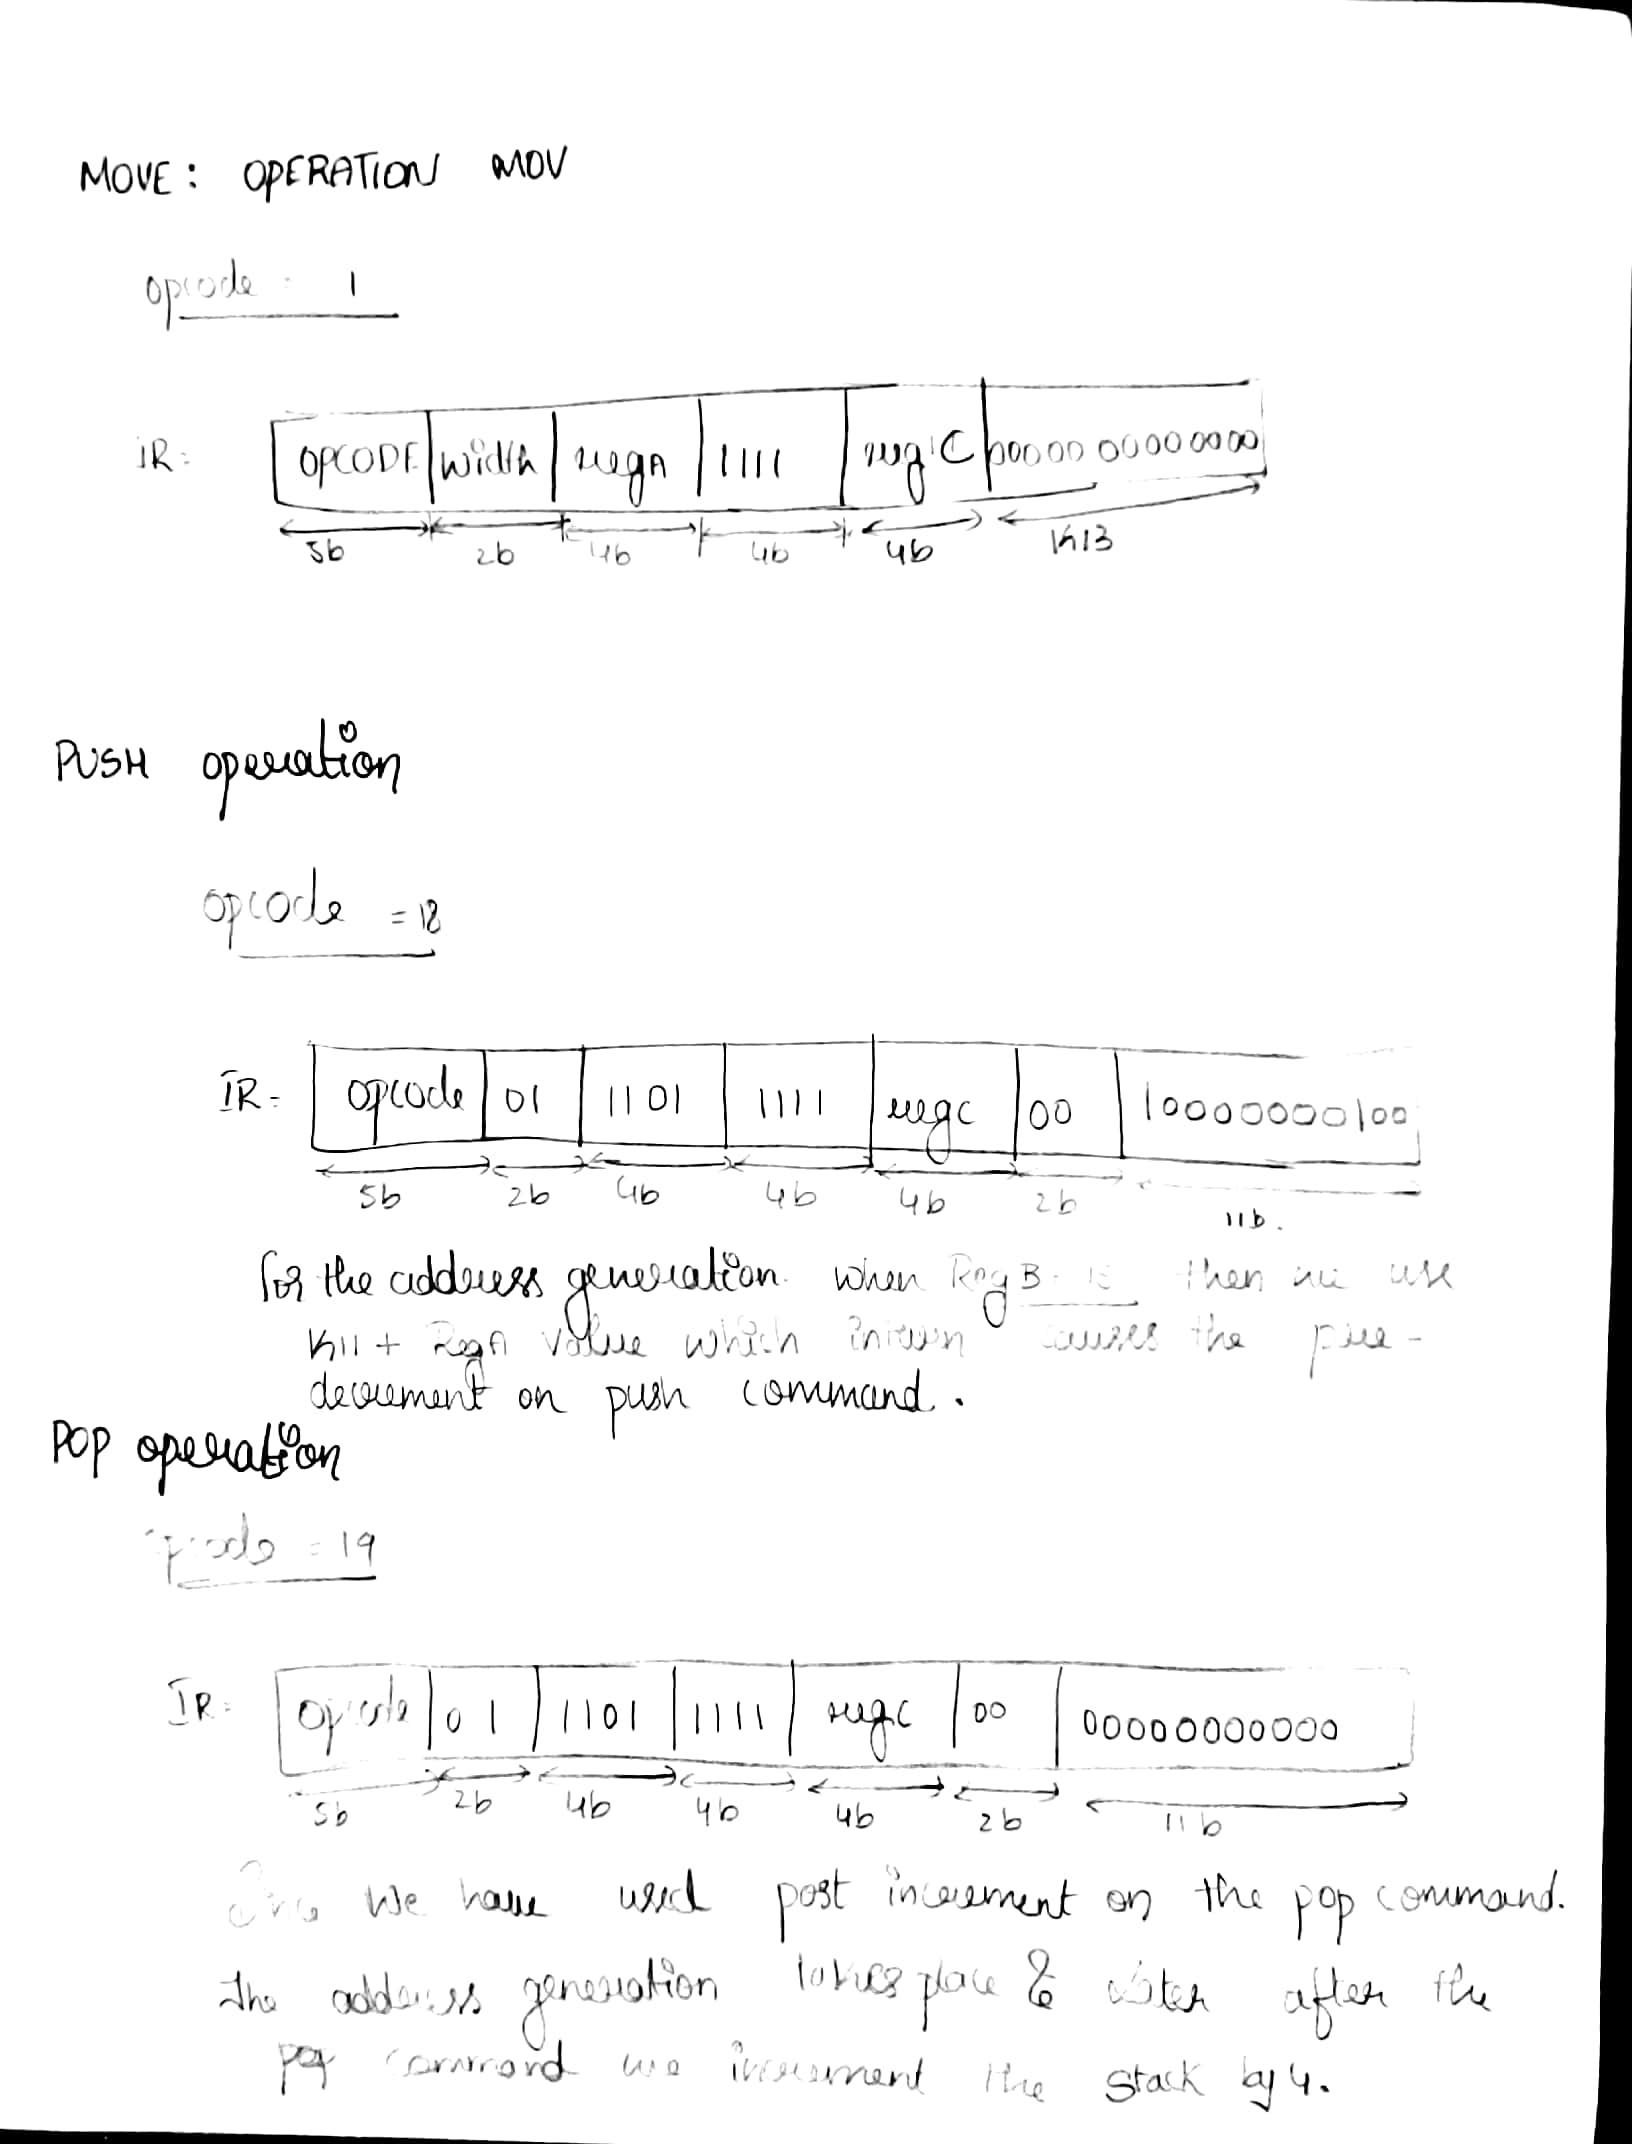 MOVE: OPERATION MOV
opcode = 1
IR: OPCODE width regA 1111 regC 0000000000000
5b 2b 4b 4b 4b K13
PUSH operation
opcode = 18
IR = opcode 01 1101 1111 regC 00 10000000100
5b 2b 4b 4b 4b 2b 11b.
for the address generation. when Reg B = 15 then we use
K11 + RegA value which inturn causes the pre-
decrement on push command.
POP operation
opcode = 19
IR = opcode 01 1101 1111 regC 00 00000000000
5b 2b 4b 4b 4b 2b 11b
we have used post increment on the pop command.
the address generation takes place & after the
pop command we increment the stack by 4.